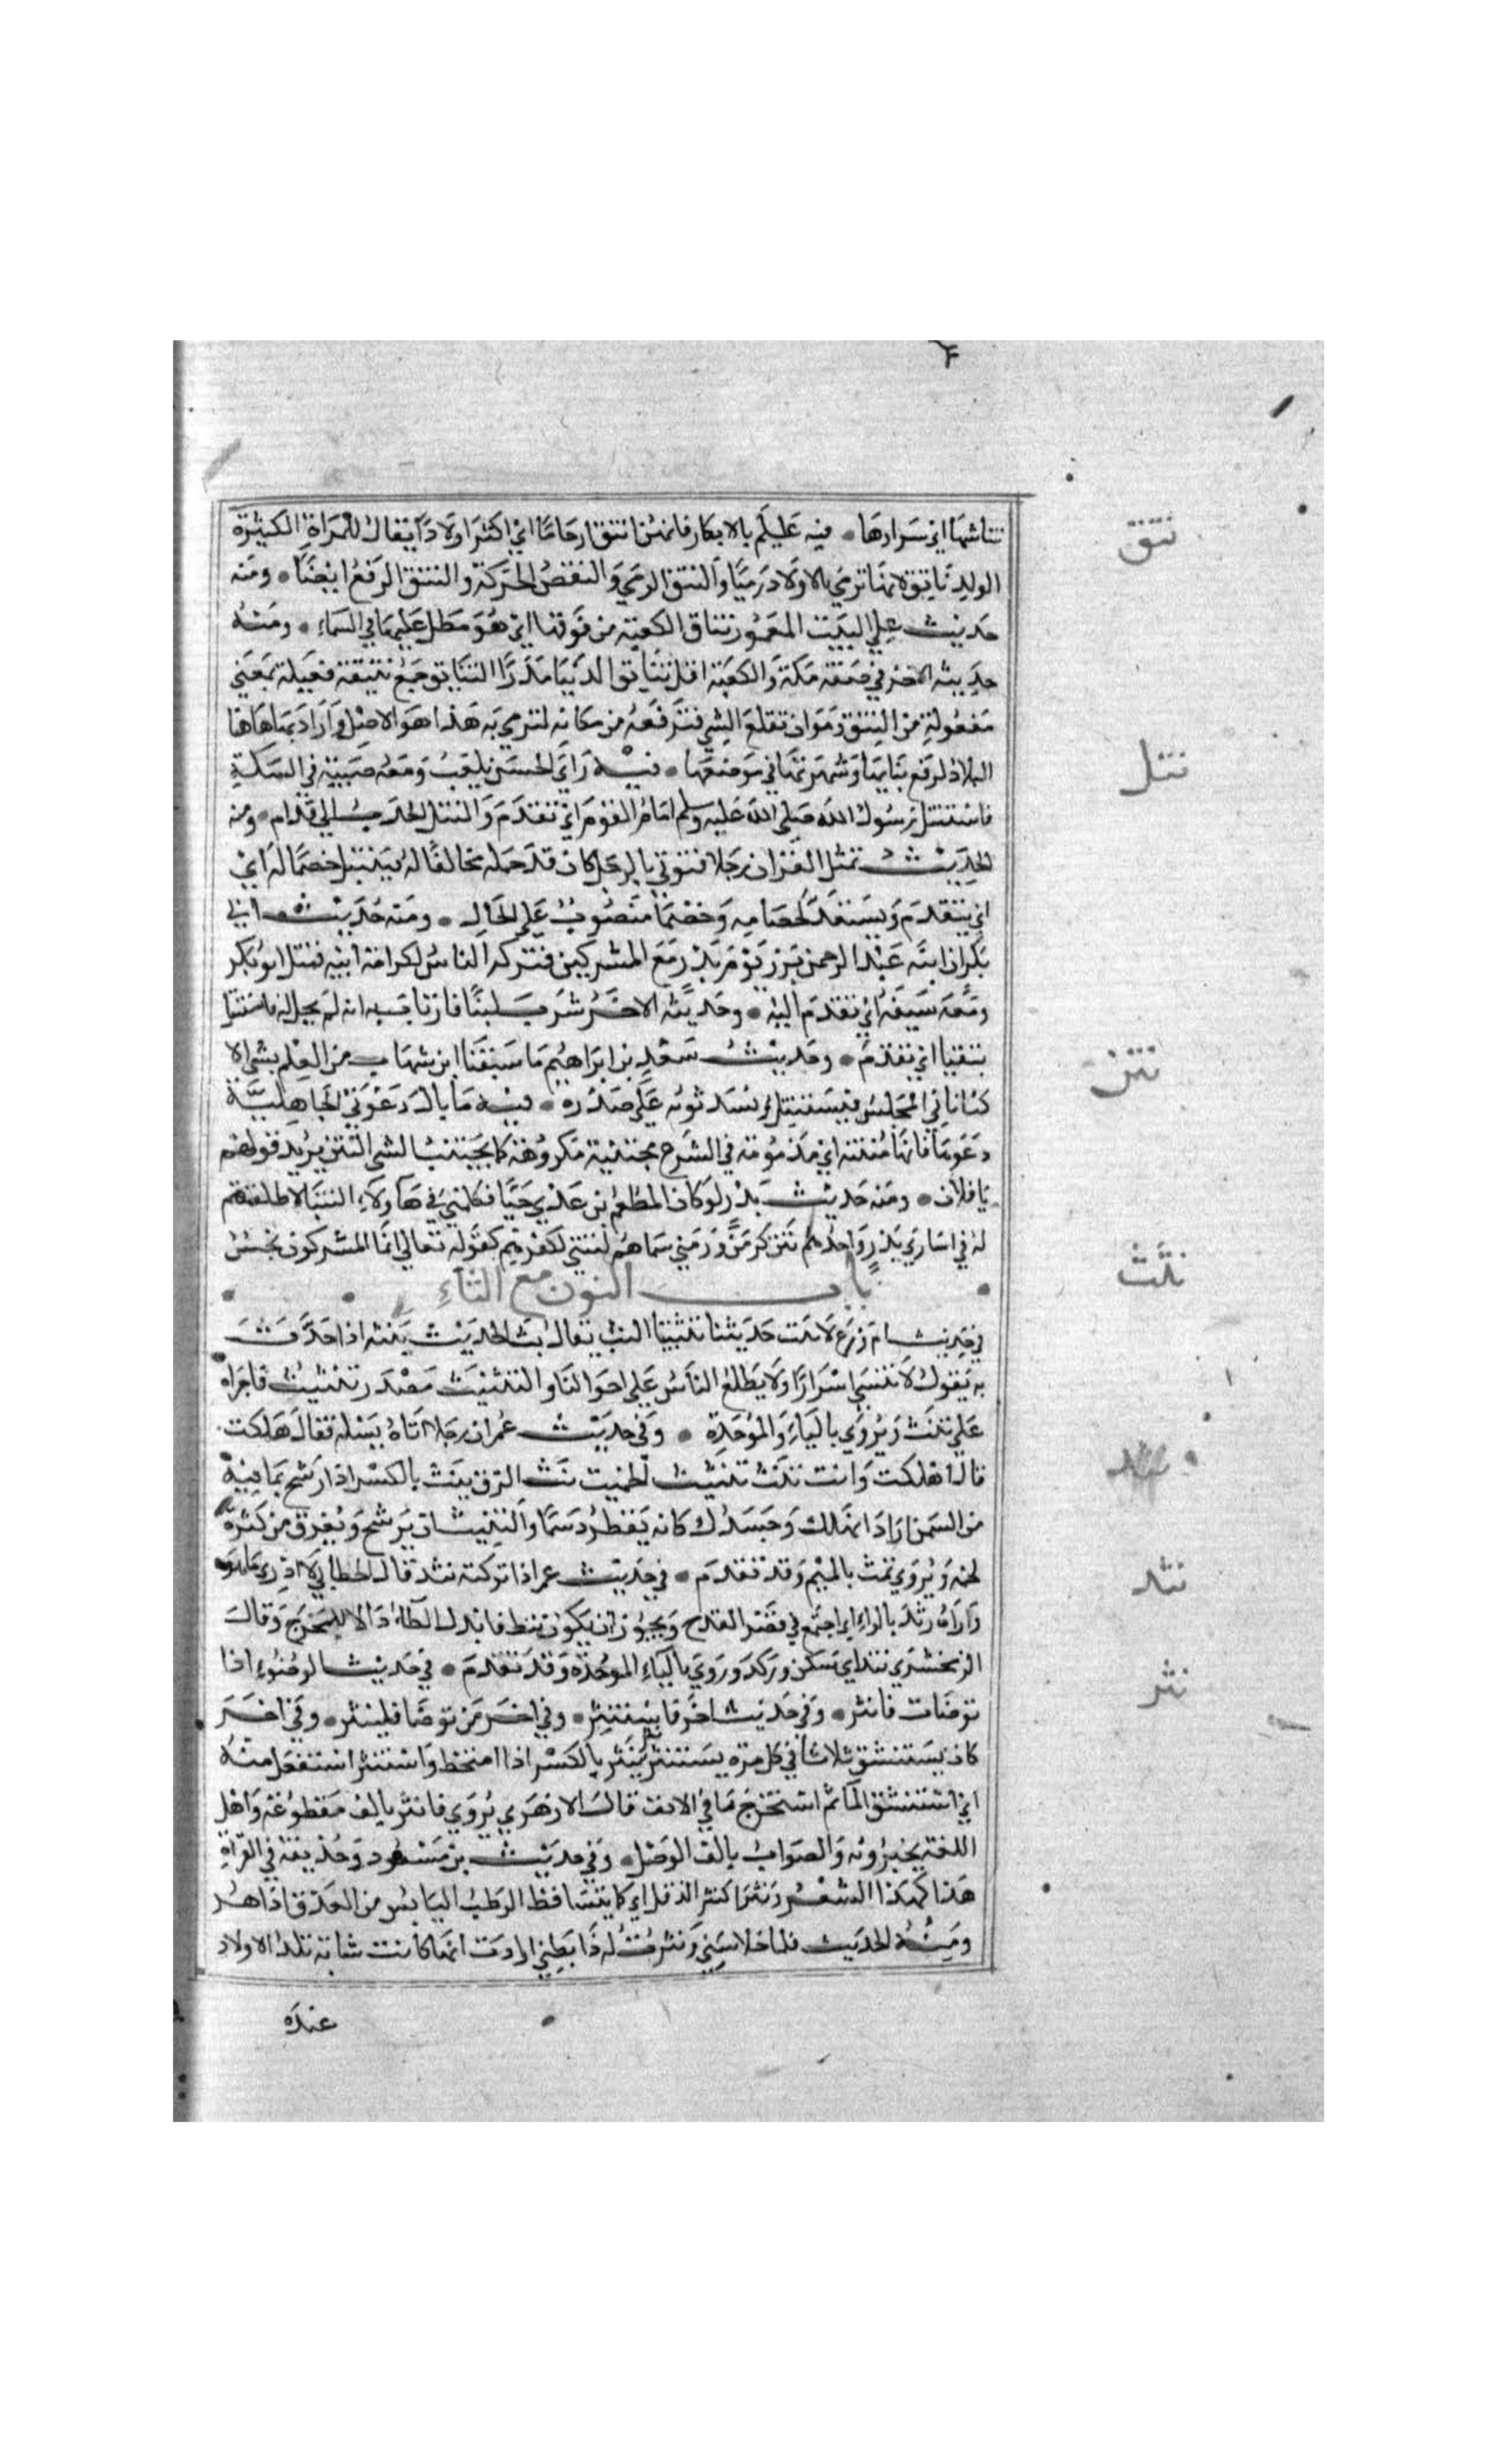 نتاشها اي شرارها • فيه عليكم بالابكار فانهن انتق ارحاما اي اكثر اولادا يقال للمراة الكثيرة
الولد ناتق لانها ترمي بالاولاد رميا والنتق الرمي والنفض الحركة والنتق الرفع ايضا • ومنه
حديث علي البيت المعمور نتاق الكعبة من فوقها اي هو مطل عليها في السماء • ومنه
حديثه الاخر في صفة مكة والكعبة اقل نتايق الدنيا مدرا النتايق جمع نتيقة فعيلة بمعني
مفعولة من النتق وهو ان تقلع الشي فترفعه من مكانه لترمي به هذا هو الاصل واراد بها هاهنا
البلاد لرفع بنايها وشهرتها في موضعها • فيه راي الحسن يلعب ومعه صبية في السكة
فاستنتل رسول الله صلي الله عليه وسلم امام القوم اي تقدم والنتل الجذب الي قدام • ومنه
الحديث تمثل القران رجلا فتوتي بالرجل كان قد حمله مخالفا له فينتتل خصما له اي
اي يتقدم ويستعد لخصامه وخصما منصوب علي الحال • ومنه حديث ابي
بكر ان ابنه عبد الرحمن برز يوم بدر مع المشركين فتركه الناس لكرامة ابيه فنتل ابو بكر
ومعه سيفه اي تقدم اليه • وحديثه الاخر شرب لبنا فارتاب به انه لم يحل له فاستنتل
يتقيا اي يتقدم • وحديث سعد بن ابراهيم ما سبقنا ابن شهاب من العلم بشي الا
كنا ناتي المجلس فيستنتل ويشد ثوبه علي صدره • فيه ما بال دعوي الجاهلية
دعوها فانها منتنة اي مذمومة في الشرع مجتنبة مكروهة كما يجتنب الشي النتن يريد قولهم
يا فلان • ومنه حديث بدر لو كان المطعم بن عدي حيا فكلمني في هاولاء النتنا لاطلقتهم
له في اساري بدر واحدهم نتن كزمن وزمني سماهم نتني لكفرهم كقوله تعالي انما المشركون نجس
باب النون مع الثاء
في حديث ام زرع لا تنث حديثنا تنثيثا النث يقال بث الحديث ينثه اذا حدث
به يقول لا تفشي اسرارنا ولا يطلع الناس علي احوالنا والتنثيث مصدر تنثيث فاجراه
علي تنث ويروي بالياء والموحدة • وفي حديث عمر ان رجلا اتاه يسله فقال هلكت
قال اهلكت وانت تنث تنثيث الحميت نث الزق ينث بالكسر اذا رشح بما فيه
من السمن اراد اتهلك وجسدك كانه يقطر دسما والنثيث ان يرشح ويعرق من كثرة
لحمه ويروي تمث بالميم وقد تقدم • في حديث عمر اذا تركته نثد قال الخطابي لا ادري ما هو
واراه رثد بالراء اي اجتمع في قعر القدح ويجوز ان يكون نثط فابدل الطاء دالا للمخرج وقال
الزمخشري نثد اي سكن وركد وروي بالباء الموحدة وقد تقدم • في حديث الوضوء اذا
توضات فانثر • وفي حديث اخر فاستنثر • وفي اخر من توضا فلينثر • وفي اخر
كان يستنشق ثلاثا في كل مرة يستنثر نثر ينثر بالكسر اذا امتخط واستنثر استفعل منه
اي استنشق الما ثم استخرج ما في الانف قال الازهري يروي فانثر بالف مقطوعة واهل
اللغة يجيزونه والصواب بالف الوصل • وفي حديث بن مسعود وحذيفة في القراة
هذا كهذ الشعر ونثرا كنثر الدقل اي كما يتساقط الرطب اليابس من العذق اذا هز
ومنه الحديث فلما خلا سني ونثرت له ذا بطني ارادت انها كانت شابة تلد الاولاد
عنده
نتق
نتل
نتن
نثث
نثد
نثر